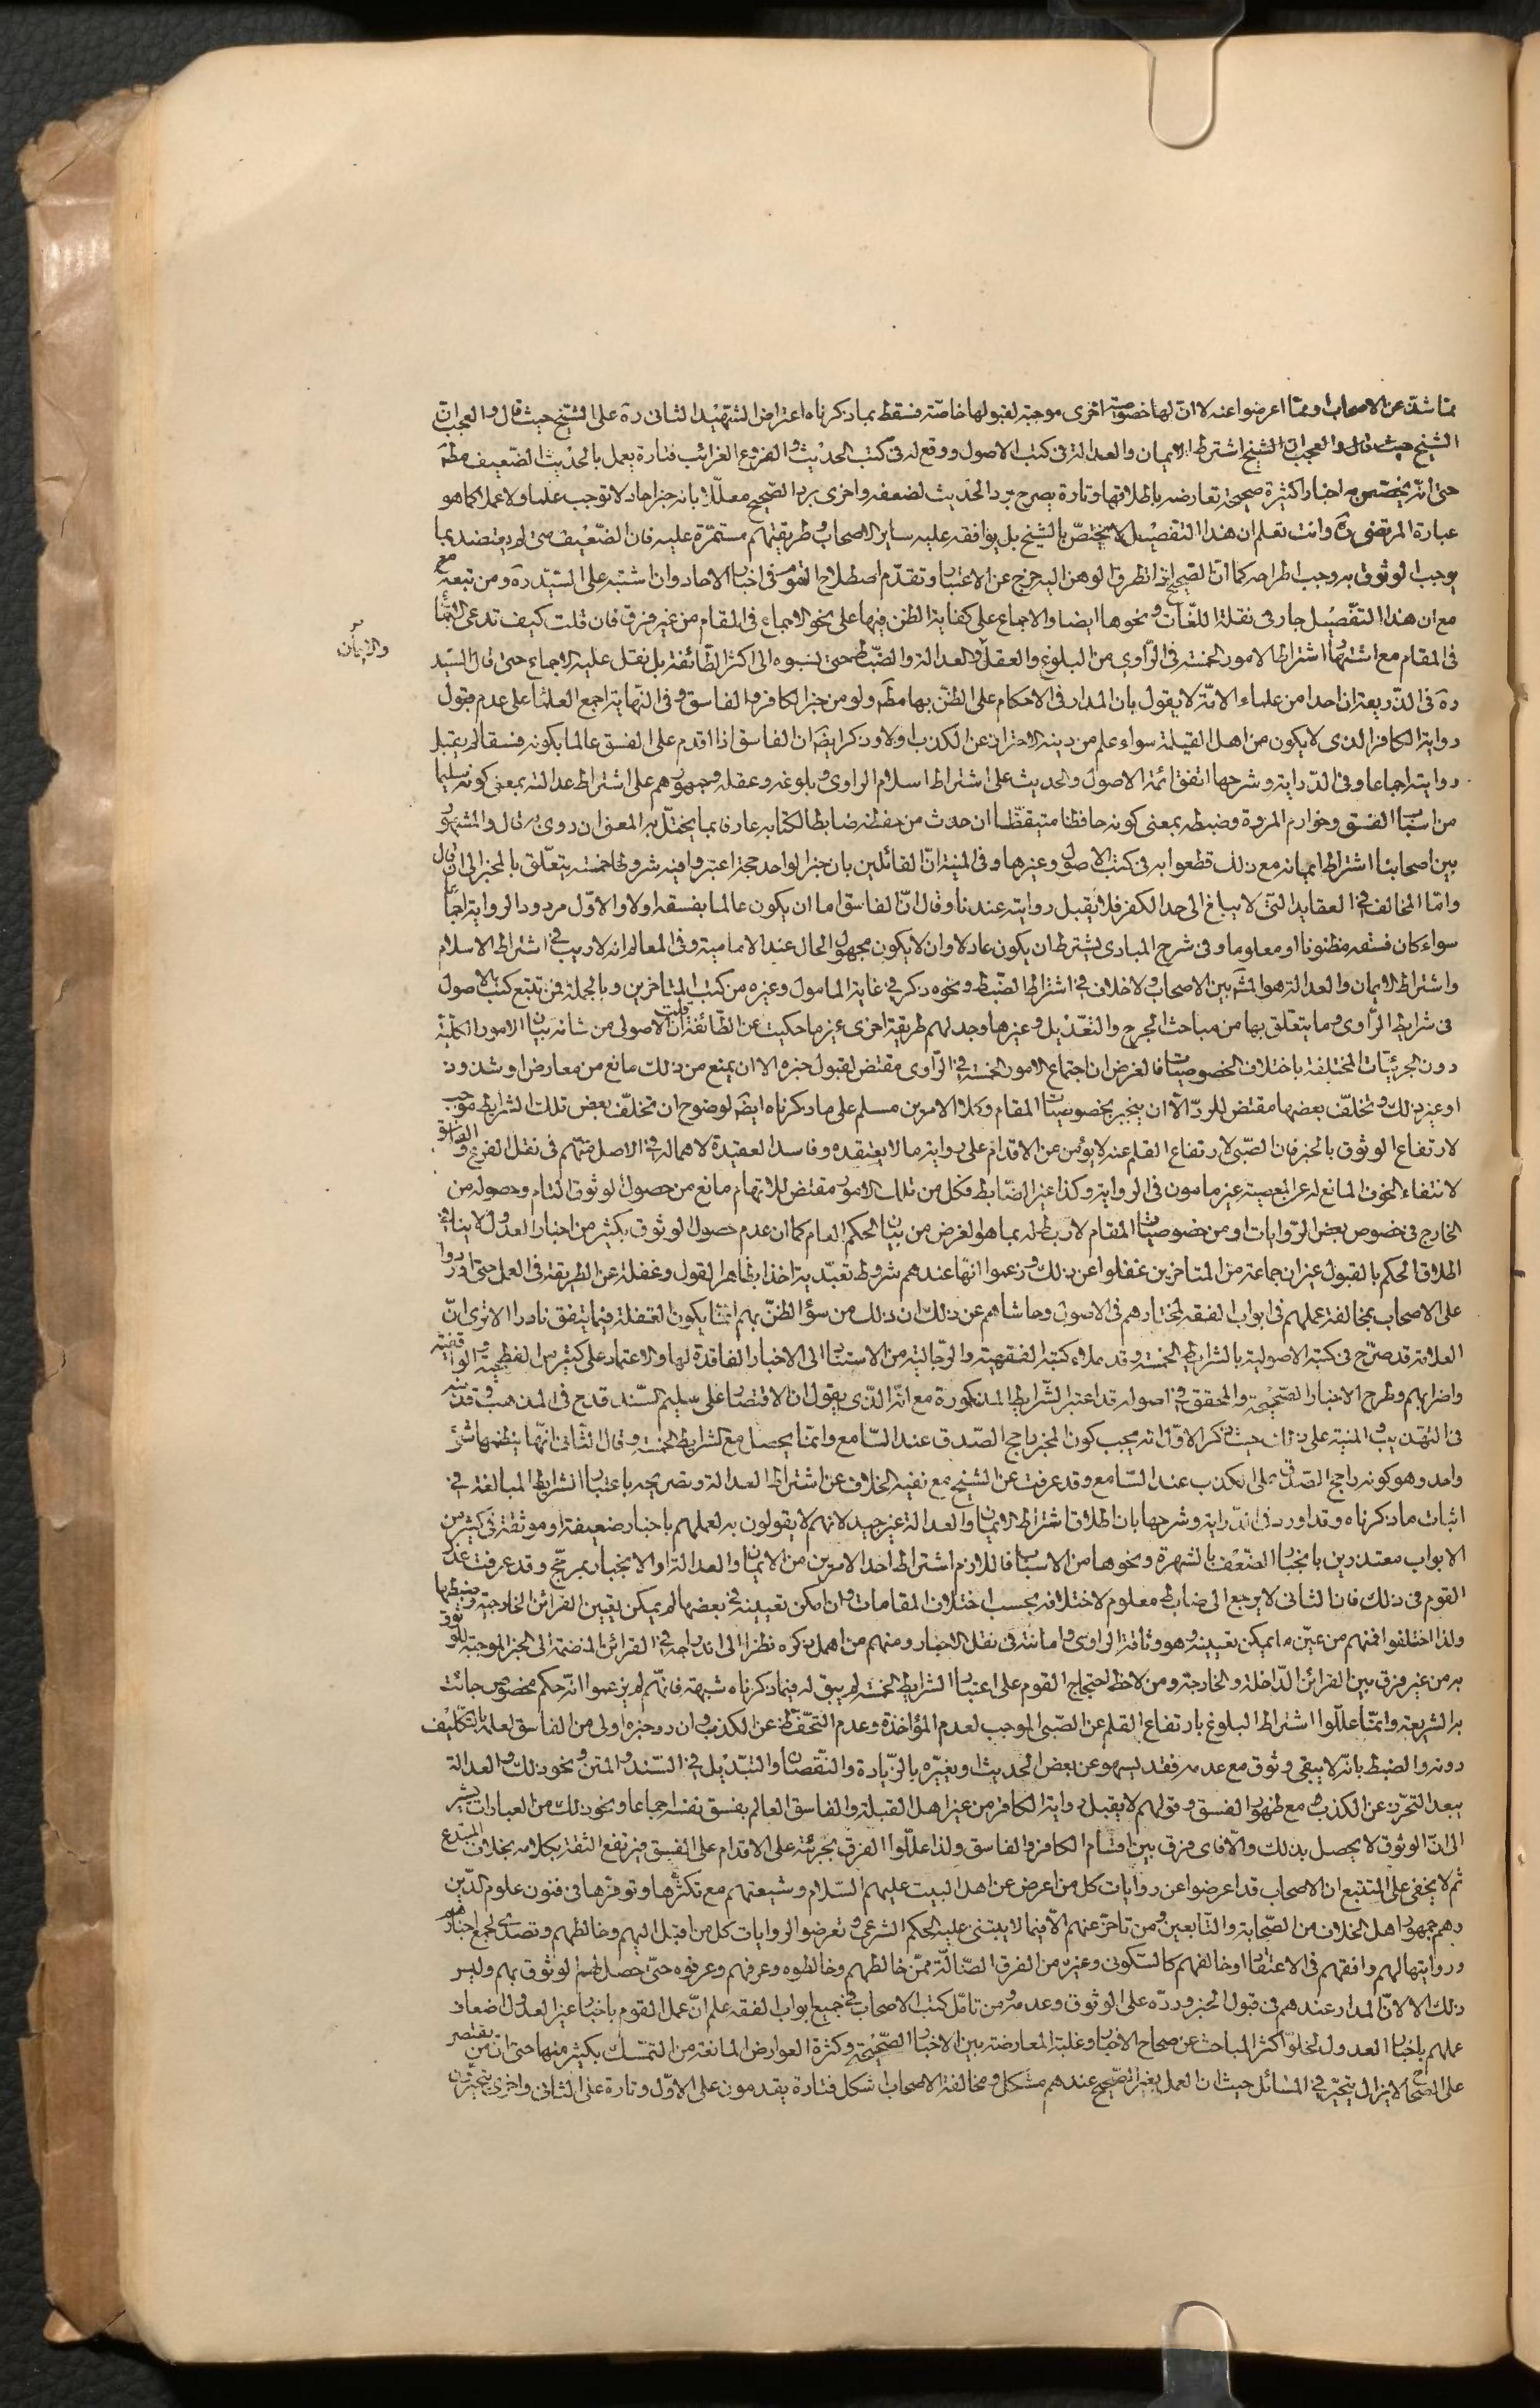 مما شذ عن الاصحاب ومما اعرضوا عنه لا ان لها خصوصية اخرى موجبة لقبولها خاصة فسقط بما ذكرناه اعتراض الشهيد الثانى ره على الشيخ حيث قال والعجب ان
الشيخ حيث قال والعجب ان الشيخ اشترط الايمان والعدالة فى كتب الاصول ووقع له فى كتب الحديث والفروع الغرائب فتارة يعمل بالحديث الضعيف مطه
حتى انه يخصص به اخبارا كثيرة صحيحة تعارضه باطلاقها وتارة يصرح برد الحديث لضعفه واخرى برد الصحيح معللا بانه خبر احاد لا توجب علما ولا عملا كما هو
عبارة المرتضى ره وانت تعلم ان هذا التفصيل لا يختص بالشيخ بل يوافقه عليه ساير الاصحاب وطريقتهم مستمرة عليه فان الضعيف متى لم يعتضد بما
يوجب الوثوق به وجب اطراحه كما ان الصحيح اذا تطرق الوهن اليه خرج عن الاعتبار وتقدم اصطلاح القوم فى اخبار الاحاد وان اشتبه على السيد ره ومن تبعه
مع ان هذا التفصيل جار فى نقلة اللغات ونحوها ايضا والاجماع على كفاية الظن فيها على نحو الاجماع فى المقام من غير فرق فان قلت كيف تدعى
فى المقام مع اشتهار اشتراط الامور الخمسة فى الراوى من البلوغ والعقل والعدالة والضبط حتى نسبوه الى اكثر الطائفة بل نقل عليه الاجماع حتى قال السيد
والايمان
ره فى الذريعة ان احدا من علماء الامة لا يقول بان المدار فى الاحكام على الظن بها مطه ولو من خبر الكافر والفاسق وفى النهاية اجمع العلماء على عدم قبول
رواية الكافر الذى لا يكون من اهل القبلة سواء علم من دينه الاحتراز عن الكذب اولا وذكر ايضه ان الفاسق اذا اقدم على الفسق عالما بكونه فسقا لم يقبل
روايته اجماعا وفى الدراية وشرحها اتفق ائمة الاصول والحديث على اشتراط اسلام الراوى وبلوغه وعقله وجمهورهم على اشتراط عدالته بمعنى كونه سليما
من اسباب الفسق وخوارم المروة وضبطه بمعنى كونه حافظا متيقظا ان حدث من حفظه ضابطا لكتابه عارفا بما يختل به المعنى ان روى به قال والمشهور
بين اصحابنا اشتراط ايمانه مع ذلك قطعوا به فى كتب الاصول وغيرها وفى المنية ان القائلين بان خبر الواحد حجة اعتبروا فيه شروطا خمسة يتعلق بالمخبر الى ان قال
واما المخالف فى العقايد التى لا يبلغ الى حد الكفر فلا يقبل روايته عندنا وقال ان الفاسق اما ان يكون عالما بفسقه اولا والاول مردود الرواية اجماعا
سواء كان فسقه مظنونا او معلوما وفى شرح المبادى يشترط ان يكون عادلا وان لا يكون مجهول الحال عند الامامية وفى المعالم انه لا ريب فى اشتراط الاسلام
واشتراط الايمان والعدالة هو المشه بين الاصحاب ولا خلاف فى اشتراط الضبط ونحوه ذكر فى غاية المامول وغيره من كتب المتاخرين وبالجملة فمن تتبع كتب الاصول
فى شرايط الراوى وما يتعلق بها من مباحث الجرح والتعديل وغيرها وجد لهم طريقة اخرى غير ما حكيت عن الطائفة قلت ان الاصولى من شانه بيان الامور الكلية
دون الجزئيات المختلفة باختلاف الخصوصيات فالغرض ان اجتماع الامور الخمسة فى الراوى مقتض لقبول خبره الا ان يمنع من ذلك مانع من معارض او شذوذ
او غير ذلك وتخلف بعضها مقتض للرد الا ان ينجبر بخصوصيات المقام وكلا الامرين مسلم على ما ذكرناه ايضه لوضوح ان تخلف بعض تلك الشرايط موجب
لارتفاع الوثوق بالخبر فان الصبى لارتفاع القلم عنه لا يؤمن عن الاقدام على رواية ما لا يعتقده وفاسد العقيدة لاهماله فى الاصل متهم فى نقل الفرع والفاسق
لانتفاء الخوف المانع له عن المعصية غير مامون فى الرواية وكذا غير الضابط فكل من تلك الامور مقتض للاتهام مانع من حصول الوثوق التام وحصوله من
الخارج فى خصوص بعض الروايات او من خصوصيات المقام لا ربط له بما هو الغرض من بيان الحكم العام كما ان عدم حصول الوثوق بكثير من اخبار العدول لا ينافى
اطلاق الحكم بالقبول غير ان جماعة من المتاخرين غفلوا عن ذلك وزعموا انها عندهم شروط تعبدية اخذا بظاهر القول وغفلة عن الطريقة فى العمل حتى اوردوا
على الاصحاب بمخالفة عملهم فى ابواب الفقه لمختارهم فى الاصول وحاشاهم عن ذلك ان ذلك من سؤ الظن بهم انما يكون الغفلة فيما يتفق نادرا الا ترى ان
العلامة قد صرح فى كتبه الاصولية بالشرايط الخمسة وقد ملاء كتبه الفقهية والرجالية من الاستناد الى الاخبار الفاقدة لها والاعتماد على كثير من الفطحية والواقفية
واضرابهم وطرح الاخبار الصحيحة والمحقق فى اصوله قد اعتبر الشرايط المذكورة مع انه الذى يقول ان الاقتصار على سليم السند قدح فى المذهب وقد نبه
فى التهذيب والمنية على ذلك حيث ذكر الاول انه يجب كون المخبر راجح الصدق عند السامع وانما يحصل مع الشرايط الخمسة وقال الثانى انها ينظمها شئ
واحد وهو كونه راجح الصدق على الكذب عند السامع وقد عرفت عن الشيخ مع نفيه الخلاف عن اشتراط العدالة وتصريحه باعتبار الشرايط المبالغة فى
اثبات ما ذكرناه وقد اورد فى الدراية وشرحها بان اطلاق اشتراط الايمان والعدالة غير جيد لانهم لا يقولون به لعملهم باخبار ضعيفة او موثقة فى كثير من
الابواب معتذرين بانجبار الضعف بالشهرة ونحوها من الاسباب فاللازم اشتراط احد الامرين من الايمان والعدالة او الانجبار بمرجح وقد عرفت عذر
القوم فى ذلك فان الثانى لا يرجع الى ضابط معلوم لاختلافه بحسب اختلاف المقامات وان امكن تعيينه فى بعضها لم يمكن تعيين القرائن الخارجية وضبطها
ولذا اختلفوا فمنهم من عين ما يمكن تعيينه وهو وثاقة الراوى وامانته فى نقل الاخبار ومنهم من اهمل ذكره نظرا الى اندراجه فى القرائن المنضمة الى الخبر الموجبة للوثوق
به من غير فرق بين القرائن الداخلة والخارجة ومن لاحظ احتجاج القوم على اعتبار الشرايط الخمسة لم يبق له فيما ذكرناه شبهة فانهم لم يزعموا انه حكم مخصوص جائت
به الشريعة وانما عللوا اشتراط البلوغ بارتفاع القلم عن الصبى الموجب لعدم المؤاخذة وعدم التحفظ عن الكذب وان رد خبره اولى من الفاسق لعلمه بالتكليف
دونه والضبط بانه لا يبقى وثوق مع عدمه فقد يسهو عن بعض الحديث او يغيره بالزيادة والنقصان والتبديل فى السند والمتن ونحو ذلك والعدالة
ببعد التحرز عن الكذب مع ظهور الفسق وقولهم لا يقبل رواية الكافر من غير اهل القبلة والفاسق العالم بفسق نفسه اجماعا ونحو ذلك من العبارات يشير
الى ان الوثوق لا يحصل بذلك والا فاى فرق بين اقسام الكافر والفاسق ولذا عللوا الفرق بجرئته على الاقدام على الفسق فيرتفع الثقة بكلامه بخلاف المبتدع
ثم لا يخفى على المتتبع ان الاصحاب قد اعرضوا عن روايات كل من اعرض عن اهل البيت عليهم السلام وشيعتهم مع تكثرها وتوفرها فى فنون علوم الدين
وهم جمهور اهل الخلاف من الصحابة والتابعين ومن تاخر عنهم الا فيما لا يبتنى عليه الحكم الشرعى وتعرضوا لروايات كل من اقبل اليهم وخالطهم وتصدى لجمع اخبارهم
وروايتها لهم وافقهم فى الاعتقاد او خالفهم كالسكونى وغيره من الفرق الضالة ممن خالطهم وخالطوه وعرفهم وعرفوه حتى حصل لهم الوثوق بهم وليس
ذلك الا لان المدار عندهم فى قبول الخبر ورده على الوثوق وعدمه ومن تامل كتب الاصحاب فى جميع ابواب الفقه علم ان عمل القوم باخبار غير العدول اضعاف
عملهم باخبار العدول لخلو اكثر المباحث عن صحاح الاخبار وغلبة المعارضة بين الاخبار الصحيحة وكثرة العوارض المانعة من التمسك بكثير منها حتى ان من يقتصر
على الصحاح لا يزال يتحير فى المسائل حيث ان العمل بغير الصحيح عندهم مشكل ومخالفة الاصحاب اشكل فتارة يقدمون على الاول وتارة على الثانى واخرى يتحيرون